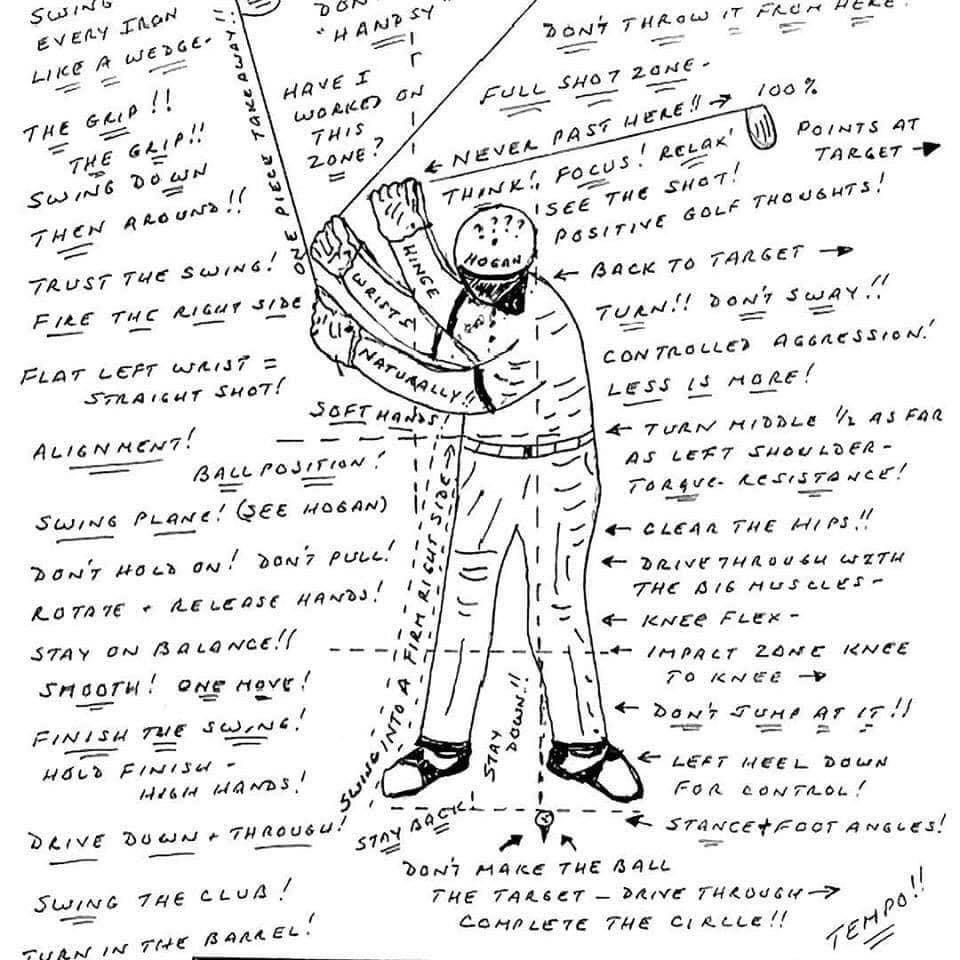 SWING
EVERY IRON
LIKE A WEDGE-
THE GRIP!!
THE GRIP!!
SWING DOWN
THEN AROUND!!
TRUST THE SWING!
FIRE THE RIGHT SIDE
FLAT LEFT WRIST =
STRAIGHT SHOT!
ALIGNMENT!
BALL POSITION!
SWING PLANE! (SEE HOGAN)
DON'T HOLD ON! DON'T PULL!
ROTATE + RELEASE HANDS!
STAY ON BALANCE!!
SMOOTH! ONE MOVE!
FINISH THE SWING!
HOLD FINISH -
HIGH HANDS!
DRIVE DOWN + THROUGH!
SWING THE CLUB!
TURN IN THE BARREL!
ONE PIECE TAKEAWAY!!
DON'T
"HANDSY"
HAVE I
WORKED ON
THIS
ZONE?
HINGE
WRISTS
NATURALLY!!
SOFT HANDS!
SWING INTO A FIRM RIGHT SIDE
STAY DOWN!!
STAY BACK
????
HOGAN
DON'T THROW IT FROM HERE!
FULL SHOT ZONE-
NEVER PAST HERE!!
100%
POINTS AT
TARGET
THINK! FOCUS! RELAX!
SEE THE SHOT!
POSITIVE GOLF THOUGHTS!
BACK TO TARGET
TURN!! DON'T SWAY!!
CONTROLLED AGGRESSION!
LESS IS MORE!
TURN MIDDLE 1/2 AS FAR
AS LEFT SHOULDER-
TORQUE- RESISTANCE!
CLEAR THE HIPS!!
DRIVE THROUGH WITH
THE BIG MUSCLES-
KNEE FLEX-
IMPACT ZONE KNEE
TO KNEE
DON'T JUMP AT IT!!
LEFT HEEL DOWN
FOR CONTROL!
STANCE + FOOT ANGLES!
DON'T MAKE THE BALL
THE TARGET - DRIVE THROUGH
COMPLETE THE CIRCLE!!
TEMPO!!